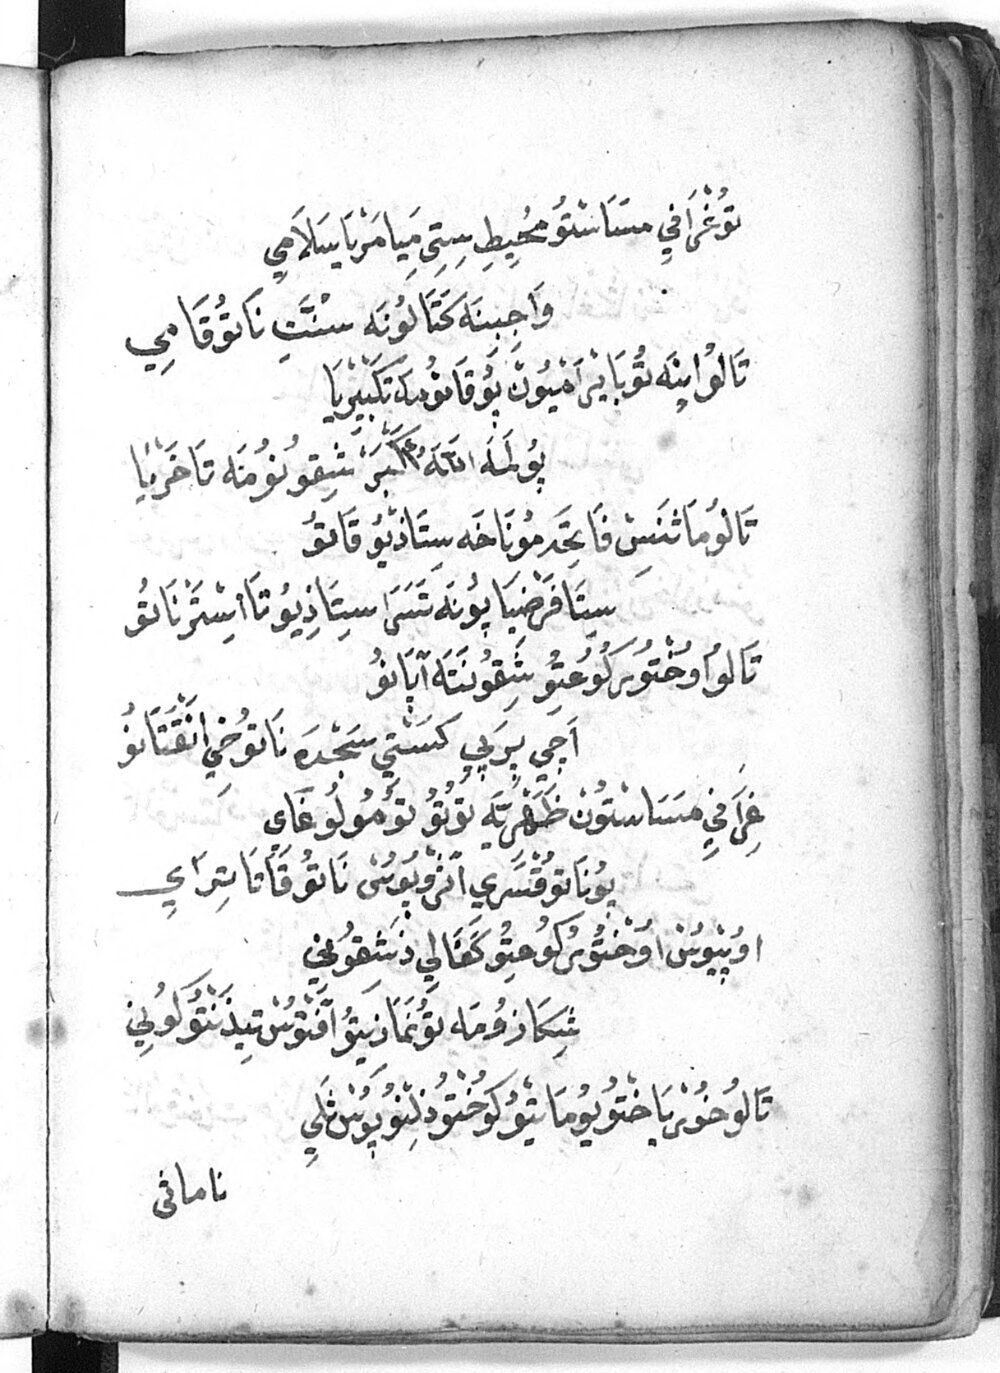 تُوغْرَافِي مَسَاسْتُو مُحِيطِ سِتِي مِيَا مَرْيَا يسَلَامِي
وَاجِبِنَه كَتَالُونَه سُنَّتِ نَاتُوقَامِي
تَالُو اينَه تُوبَايْرَامْيُونْ پُوقَانُومَه تَكْبِيرْيَا
پُولَمَه اللّٰه اَكْبَرْ شَقِونُومَه تَاخَرْيَا
تَالُو مَاثَنَسْ فَاتِحَه مُونَاخَه سِتَاذْيُو قَاتُو
سِتَا فَرْضِيَا پُونَه تَسَرَا سِتَاذِيُو تَا اسْتَرْنَاتُو
تَالُو اوخْتُورْ كُوعِتُو شَقِونَتَه آپَانُو
اَجِي پِرَپِي كَسْتِي سَجْدَه نَاتُوخِي انْقَتَانُو
غِرَافِي مَسَاسْتُونْ ظَهْرِيَّه تُوتُو تُو مُولُوغَاي
پُونَاتُو قُسَرِي انْزْوپُوسْ نَاتُو قَاتَاسِرَايِ
اوپْيُوسْ اوخْتُورْ كُوعِتُو كَفَالِي ذَشَقِونِي
شِكَازُومَه تُونَمَازِيتُو افَنْتُوسْ تِيذَنْتُو كُونِي
تَالُو خُورْيَاخْتُو يُومَاتِيُو كُوخْتُو ذَلِنُو پُوسْ ثَلِي
ناماثى